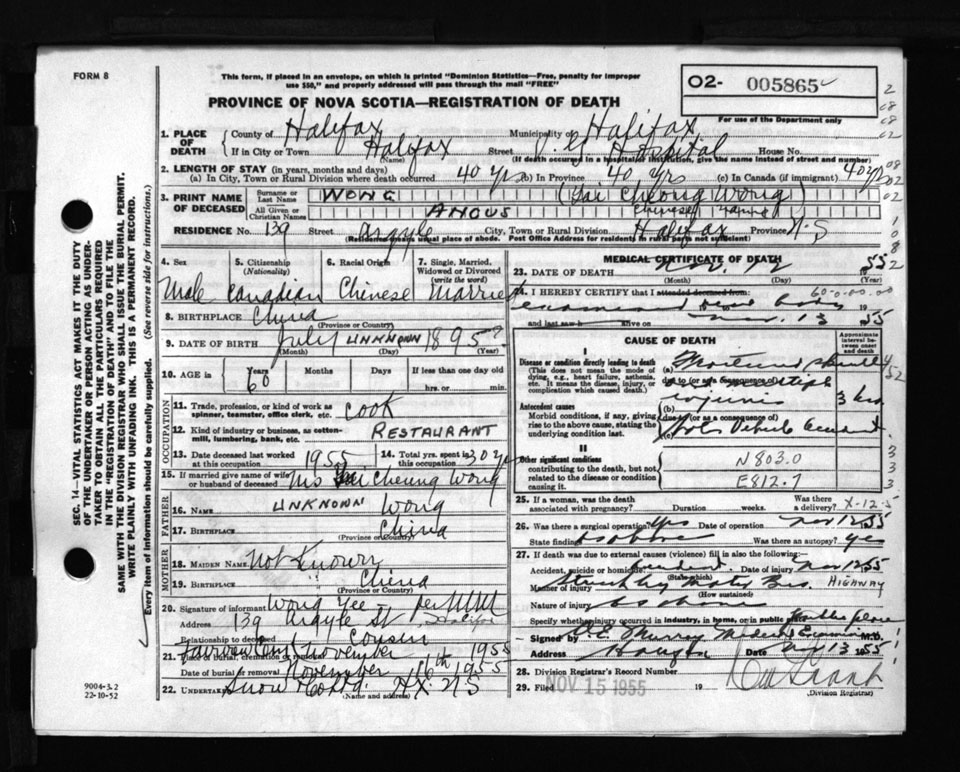 FORM 8
This form, if placed in an envelope, on which is printed "Dominion Statistics—Free, penalty for improper
use $50," and properly addressed will pass through the mail "FREE"
O2- 005865
For use of the Department only
PROVINCE OF NOVA SCOTIA—REGISTRATION OF DEATH
1. PLACE OF DEATH
County of Halifax Municipality of Halifax
If in City or Town Halifax (Name) Street Hospital House No.
(If death occurred in a hospital or institution, give the name instead of street and number)
2. LENGTH OF STAY (in years, months and days)
(a) In City, Town or Rural Division where death occurred 40 yrs (b) In Province 40 yrs (c) In Canada (if immigrant) 40 yrs
3. PRINT NAME OF DECEASED
Surname or Last Name WONG (Sai Cheong Wong)
All Given or Christian Names ANGUS Chinese
RESIDENCE No. 139 Street Argyle City, Town or Rural Division Halifax Province N.S
(Residence means usual place of abode. Post Office Address for residents in rural parts not sufficient)
4. Sex Male
5. Citizenship (Nationality) Canadian
6. Racial Origin Chinese
7. Single, Married, Widowed or Divorced (write the word) Married
8. BIRTHPLACE China
(Province or Country)
9. DATE OF BIRTH July UNKNOWN 1895?
(Month) (Day) (Year)
10. AGE in Years 60 Months Days If less than one day old
hrs. or min.
OCCUPATION
11. Trade, profession, or kind of work as spinner, teamster, office clerk, etc. cook
12. Kind of industry or business, as cotton-mill, lumbering, bank, etc. RESTAURANT
13. Date deceased last worked at this occupation 1955
14. Total yrs. spent in this occupation 30 yrs
15. If married give name of wife or husband of deceased Cheung Wong
FATHER
16. NAME UNKNOWN Wong
17. BIRTHPLACE China
(Province or Country)
MOTHER
18. MAIDEN NAME Not Known
19. BIRTHPLACE China
(Province or Country)
20. Signature of informant Wong Yee per
Address 139 Argyle St Halifax
Relationship to deceased Cousin
21. Place of burial, cremation or removal Fairview Cem November 1955
Date of burial or removal November 16th 1955
22. UNDERTAKER Snow HX NS
(Name and address)
MEDICAL CERTIFICATE OF DEATH
23. DATE OF DEATH Nov. 12 1955
(Month) (Day) (Year)
24. I HEREBY CERTIFY that I attended deceased from: examined dead body 19
and last saw h alive on Nov. 13 1955
CAUSE OF DEATH
Approximate interval between onset and death
I
Disease or condition directly leading to death
(This does not mean the mode of dying, e.g., heart failure, asthenia, etc. It means the disease, injury, or complication which caused death.)
(a)
due to (or as a consequence of) multiple injuries
Antecedent causes
Morbid conditions, if any, giving rise to the above cause, stating the underlying condition last.
(b)
due to (or as a consequence of)
(c) Motor Vehicle Accident
II
Other significant conditions
contributing to the death, but not related to the disease or condition causing it.
N803.0
E812.7
25. If a woman, was the death associated with pregnancy? Duration weeks. Was there a delivery?
X-12-5
26. Was there a surgical operation? Yes Date of operation Nov 12 55
State finding as above Was there an autopsy? yes
27. If death was due to external causes (violence) fill in also the following:—
Accident, suicide or homicide? Accident (State which) Date of injury Nov 12 55
Manner of injury Struck by Motor Bus HIGHWAY
(How sustained)
Nature of injury as above
Specify whether injury occurred in industry, in home, or in public place Public place
Signed by A.E. Murray Medical Examiner M.D.
Address Date Nov 13 1955
28. Division Registrar's Record Number
29. Filed NOV 15 1955 19
(Division Registrar)
SEC. 14—VITAL STATISTICS ACT MAKES IT THE DUTY
OF THE UNDERTAKER OR PERSON ACTING AS UNDER-
TAKER TO OBTAIN ALL THE PARTICULARS REQUIRED
IN THE "REGISTRATION OF DEATH" AND TO FILE THE
SAME WITH THE DIVISION REGISTRAR WHO SHALL ISSUE THE BURIAL PERMIT.
WRITE PLAINLY WITH UNFADING INK. THIS IS A PERMANENT RECORD.
Every item of information should be carefully supplied. (See reverse side for instructions.)
9004-3.2
22-10-52